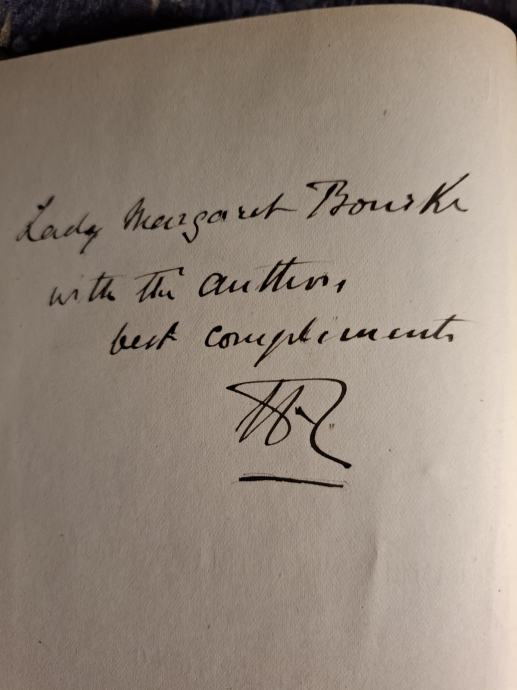 Lady Margaret Bourke
with the authors
best compliments